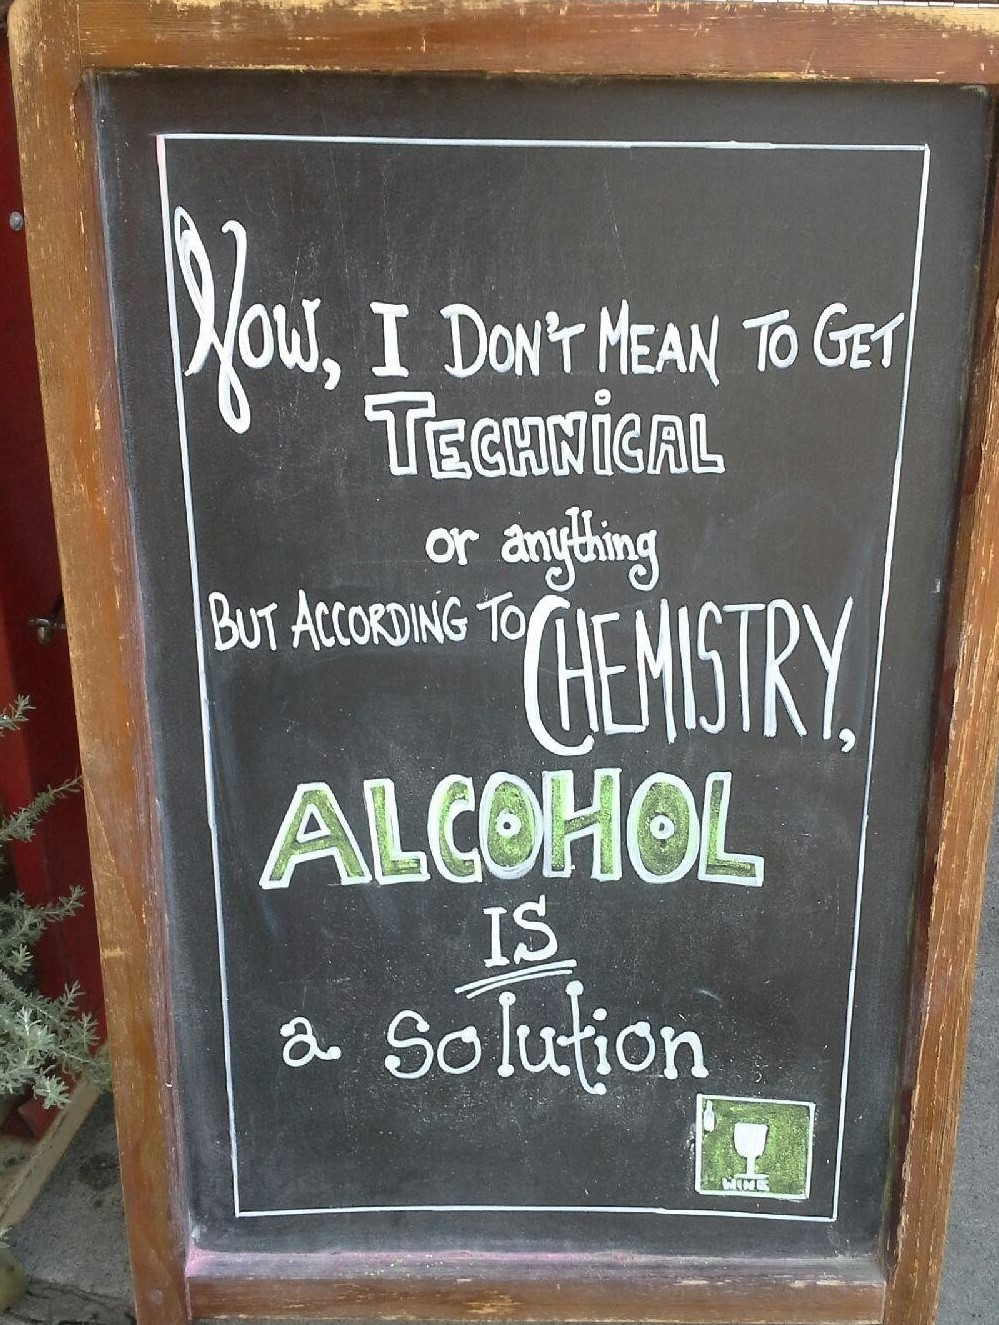 Now, I DON'T MEAN TO GET
TECHNiCAL
or anything
BUT ACCORDING TO CHEMISTRY,
ALCOHOL
IS
a solution
WINE